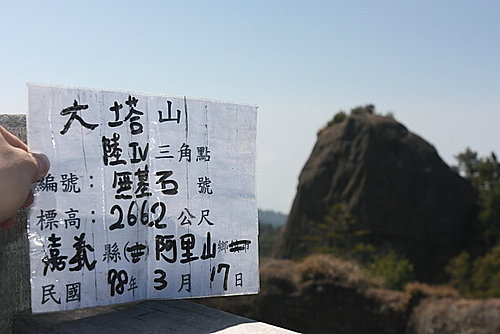 大塔山
陸IV三角點
編號：無基石號
標高：2662公尺
嘉義縣 阿里山
民國98年3月17日